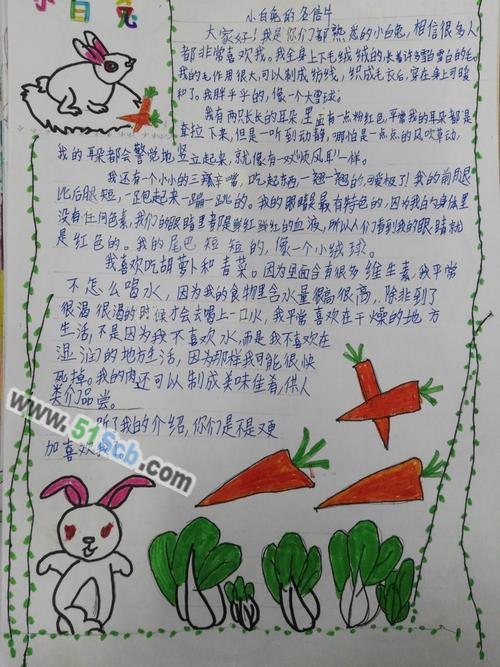 小白兔
小白兔的
大家好！我是你们都熟悉的小白兔，相信很多人
都非常喜欢我。我全身上下毛绒绒的，长着许多雪白雪白的毛。
我的毛作用很大，可以制成纺线，织成毛衣后，穿在身上可暖
和了。我胖乎乎的，像一个大雪球。
我有两只长长的耳朵里面有一点粉红色，平常我的耳朵都是
耷拉下来，但是一听到动静，哪怕是一点点的风吹草动，
我的耳朵都会警觉地竖立起来，就像有一双顺风耳一样。
我还有一个小小的三瓣嘴，吃起东西一翘一翘的，可爱极了！我的前腿
比后腿短，一跑起来一蹦一跳的。我的眼睛是最有特色的，因为我的身体里
没有任何色素，我们的眼睛里都是鲜红鲜红的血液，所以人们看到我的眼睛就
是红色的。我的尾巴短短的，像一个小绒球。
我喜欢吃胡萝卜和青菜。因为里面含有很多维生素，我平常
不怎么喝水，因为我的食物里含水量很高很高，除非到了
很渴很渴的时候才会去喝上一口水，我平常喜欢在干燥的地方
生活，不是因为我不喜欢水，而是我不喜欢在
湿润的地方生活，因为那样我可能很快
死掉。我的肉还可以制成美味佳肴，供人
类们品尝。
听了我的介绍，你们是不是更
加喜欢我
www.51Scb.com